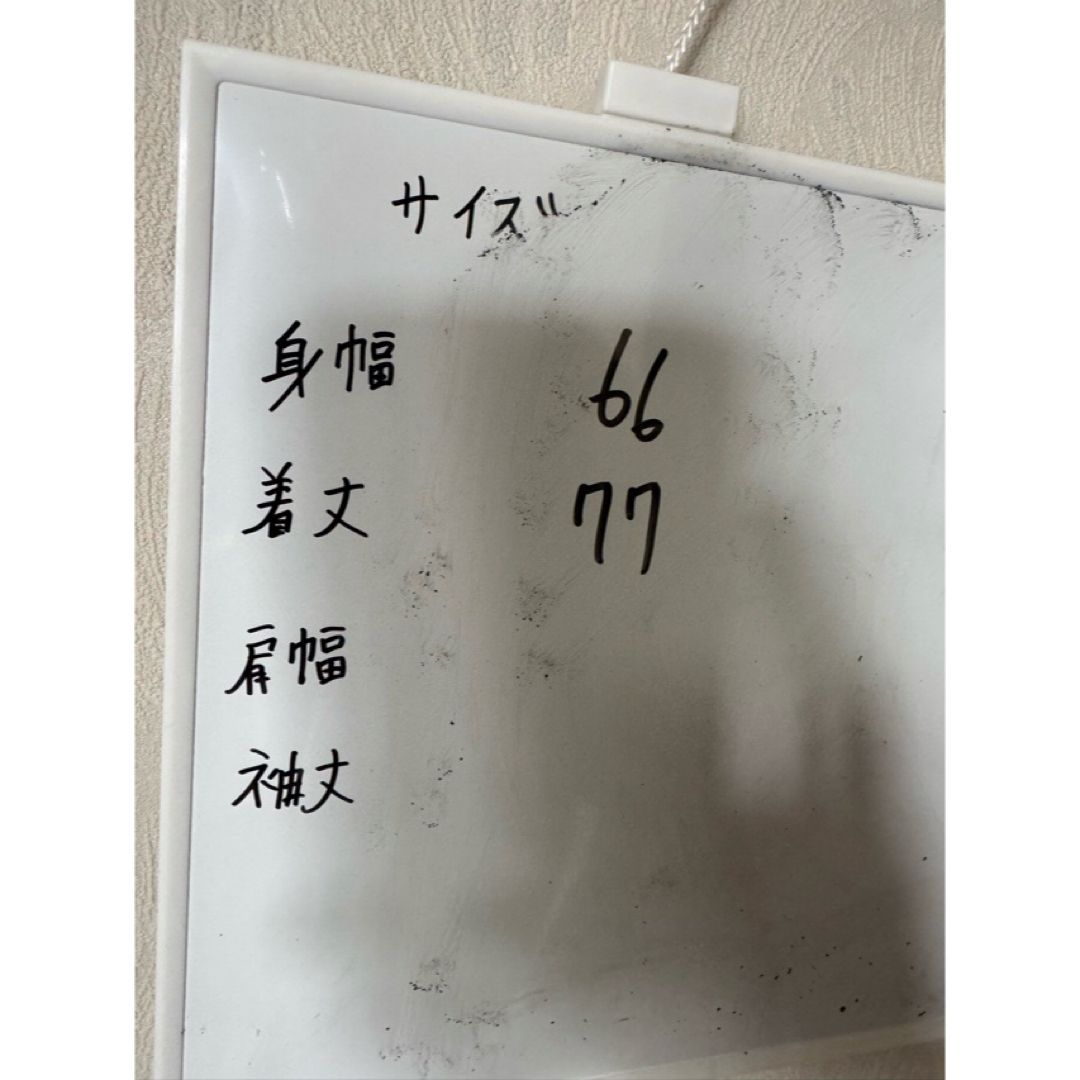 サイズ
身幅 66
着丈 77
肩幅
袖丈